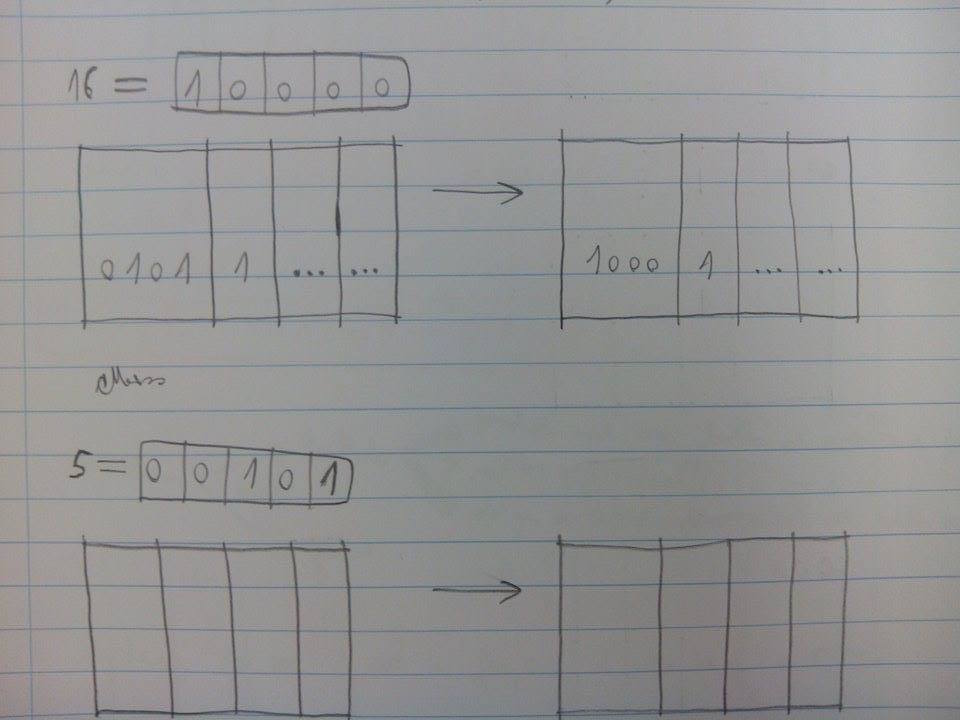 16 = 1 0 0 0 0
0101 1 ... ... 1000 1 ... ...
5 = 0 0 1 0 1